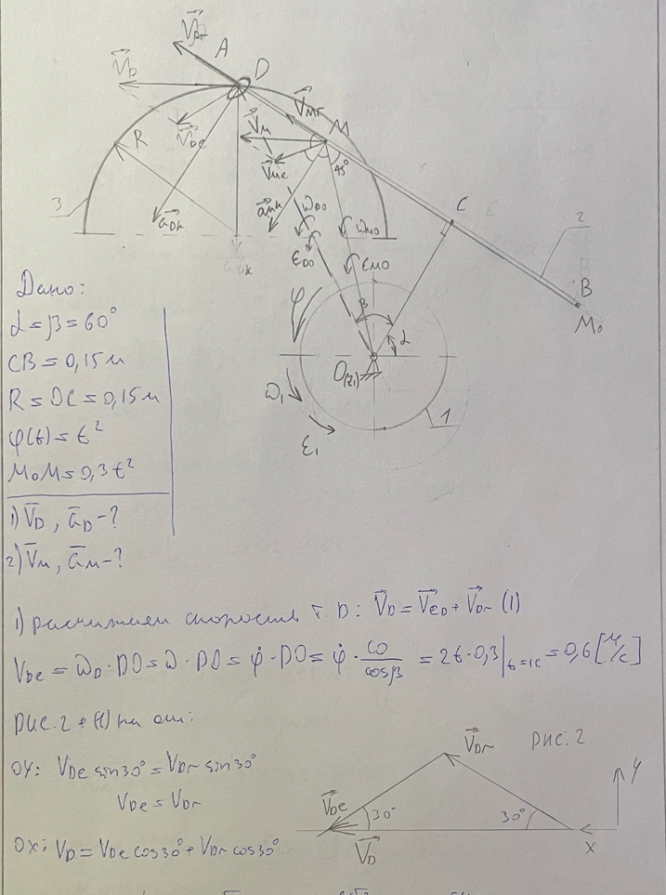 V̅Dr
A
D
V̅D
V̅Mr
V̅De
V̅M
M
R
V̅Me
45°
3
a̅Dk
a̅Mk
ωDO
ωMO
C
2
εDO
εMO
B
M₀
φ
β
α
O(z₁)
ω₁
1
ε₁
Дано:
α=β=60°
CB=0,15м
R=OC=0,15м
φ(t)=t²
M₀M=0,3t²
1) V̅D, a̅D-?
2) V̅м, a̅м-?
1) рассчитаем скорость т. D: V̅D=V̅eD+V̅Dr (1)
VDe=ωD·DO=ω·DO=φ̇·DO=φ̇·CO/cosβ=2t·0,3|t=1c=0,6[м/с]
рис.2 + (1) на оси:
OY: VDe sin30°=VDr sin30°
VDe=VDr
OX: VD=VDe cos30°+VDr cos30°
V̅Dr
рис.2
V̅De
30°
30°
y
V̅D
x